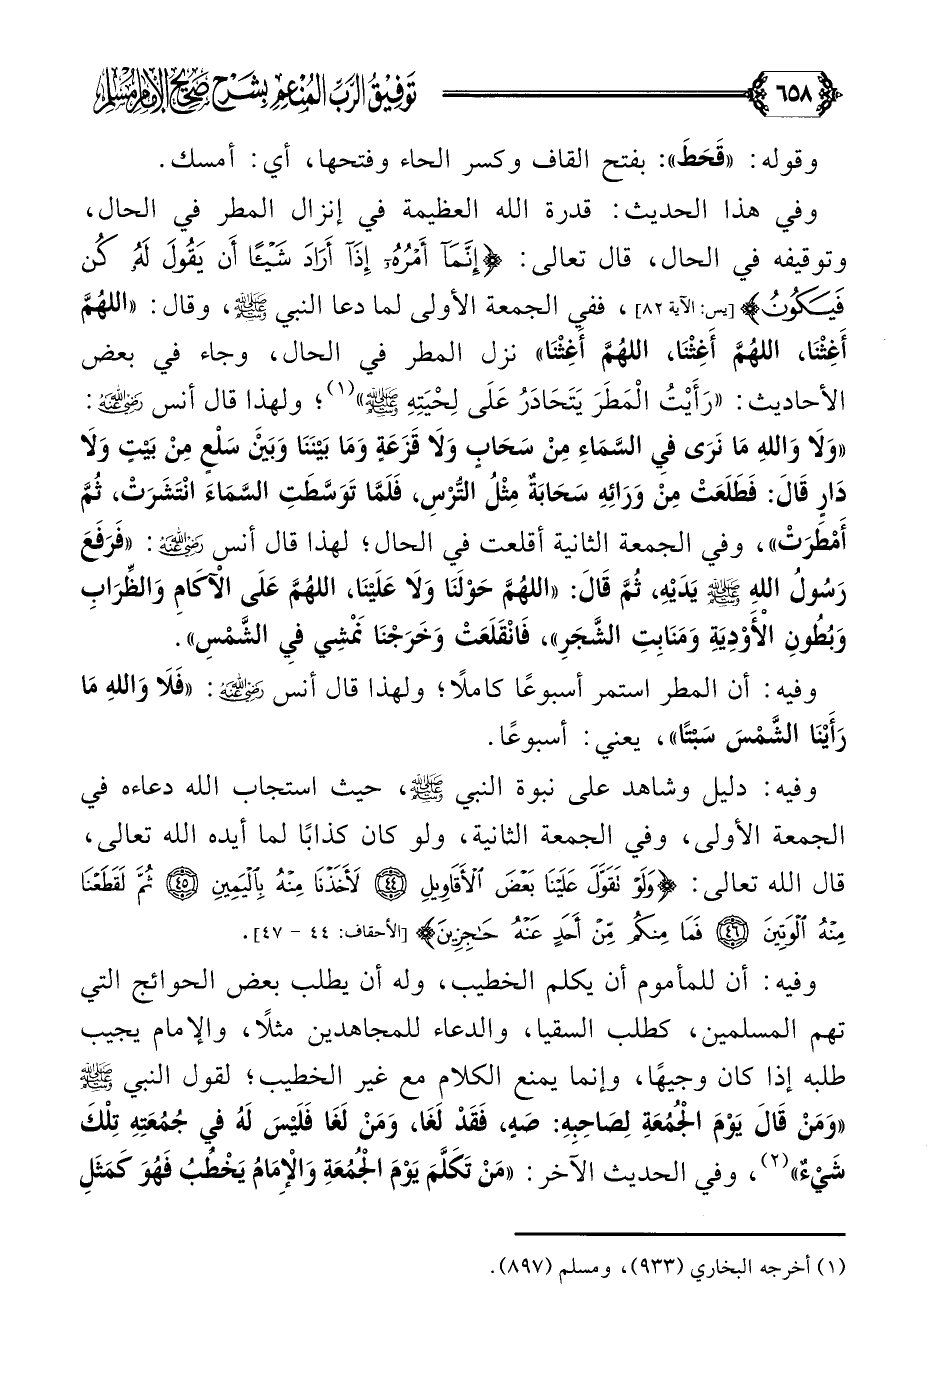 ٦٥٨ توفيق الرب المنعم بشرح صحيح الإمام مسلم
وقوله: «قَحَطَ»: بفتح القاف وكسر الحاء وفتحها، أي: أمسك.
وفي هذا الحديث: قدرة الله العظيمة في إنزال المطر في الحال،
وتوقيفه في الحال، قال تعالى: ﴿إِنَّمَآ أَمْرُهُۥٓ إِذَآ أَرَادَ شَيْـًٔا أَن يَقُولَ لَهُۥ كُن
فَيَكُونُ﴾ [يس: الآية ٨٢]، ففي الجمعة الأولى لما دعا النبي ﷺ، وقال: «اللهُمَّ
أَغِثْنَا، اللهُمَّ أَغِثْنَا، اللهُمَّ أَغِثْنَا» نزل المطر في الحال، وجاء في بعض
الأحاديث: «رَأَيْتُ الْمَطَرَ يَتَحَادَرُ عَلَى لِحْيَتِهِ ﷺ»(١)؛ ولهذا قال أنس رضي الله عنه:
«وَلَا وَاللهِ مَا نَرَى فِي السَّمَاءِ مِنْ سَحَابٍ وَلَا قَزَعَةٍ وَمَا بَيْنَنَا وَبَيْنَ سَلْعٍ مِنْ بَيْتٍ وَلَا
دَارٍ قَالَ: فَطَلَعَتْ مِنْ وَرَائِهِ سَحَابَةٌ مِثْلُ التُّرْسِ، فَلَمَّا تَوَسَّطَتِ السَّمَاءَ انْتَشَرَتْ، ثُمَّ
أَمْطَرَتْ»، وفي الجمعة الثانية أقلعت في الحال؛ لهذا قال أنس رضي الله عنه: «فَرَفَعَ
رَسُولُ اللهِ ﷺ يَدَيْهِ، ثُمَّ قَالَ: «اللهُمَّ حَوْلَنَا وَلَا عَلَيْنَا، اللهُمَّ عَلَى الْآكَامِ وَالظِّرَابِ
وَبُطُونِ الْأَوْدِيَةِ وَمَنَابِتِ الشَّجَرِ»، فَانْقَلَعَتْ وَخَرَجْنَا نَمْشِي فِي الشَّمْسِ».
وفيه: أن المطر استمر أسبوعًا كاملًا؛ ولهذا قال أنس رضي الله عنه: «فَلَا وَاللهِ مَا
رَأَيْنَا الشَّمْسَ سَبْتًا»، يعني: أسبوعًا.
وفيه: دليل وشاهد على نبوة النبي ﷺ، حيث استجاب الله دعاءه في
الجمعة الأولى، وفي الجمعة الثانية، ولو كان كذابًا لما أيده الله تعالى،
قال الله تعالى: ﴿وَلَوْ تَقَوَّلَ عَلَيْنَا بَعْضَ ٱلْأَقَاوِيلِ ٤٤ لَأَخَذْنَا مِنْهُ بِٱلْيَمِينِ ٤٥ ثُمَّ لَقَطَعْنَا
مِنْهُ ٱلْوَتِينَ ٤٦ فَمَا مِنكُم مِّنْ أَحَدٍ عَنْهُ حَـٰجِزِينَ﴾ [الأحقاف: ٤٤ - ٤٧].
وفيه: أن للمأموم أن يكلم الخطيب، وله أن يطلب بعض الحوائج التي
تهم المسلمين، كطلب السقيا، والدعاء للمجاهدين مثلًا، والإمام يجيب
طلبه إذا كان وجيهًا، وإنما يمنع الكلام مع غير الخطيب؛ لقول النبي ﷺ
«وَمَنْ قَالَ يَوْمَ الْجُمُعَةِ لِصَاحِبِهِ: صَهٍ، فَقَدْ لَغَا، وَمَنْ لَغَا فَلَيْسَ لَهُ فِي جُمُعَتِهِ تِلْكَ
شَيْءٌ»(٢)، وفي الحديث الآخر: «مَنْ تَكَلَّمَ يَوْمَ الْجُمُعَةِ وَالْإِمَامُ يَخْطُبُ فَهُوَ كَمَثَلِ
(١) أخرجه البخاري (٩٣٣)، ومسلم (٨٩٧).